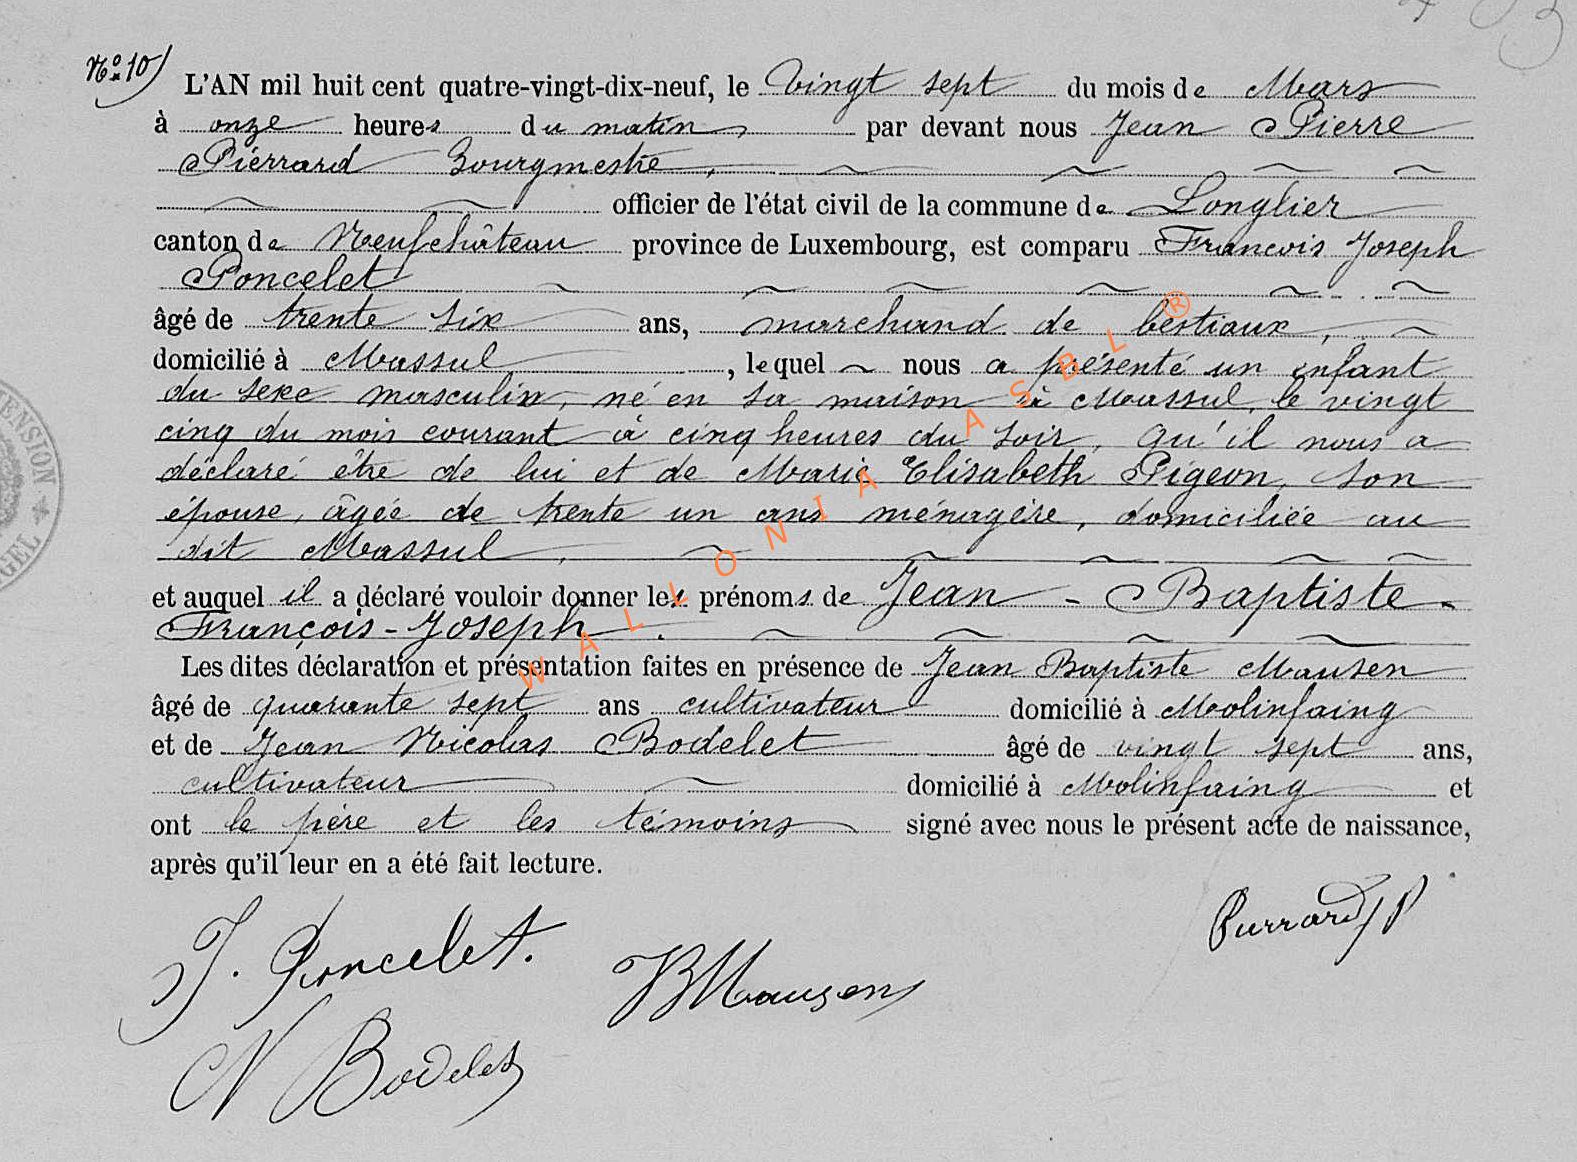 No 10)
L'AN mil huit cent quatre-vingt-dix-neuf, le vingt sept du mois de Mars
à onze heures du matin, par devant nous Jean Pierre
Pierrard Bourgmestre,
officier de l'état civil de la commune de Longlier
canton de Neufchâteau province de Luxembourg, est comparu Francois Joseph
Poncelet
âgé de trente six ans, marchand de bestiaux,
domicilié à Massul, lequel nous a présenté un enfant
du sexe masculin, né en sa maison à Massul, le vingt
cinq du mois courant à cinq heures du soir, qu'il nous a
déclaré être de lui et de Marie Elisabeth Pigeon, son
épouse, âgée de trente un ans ménagère, domiciliée au
dit Massul,
et auquel il a déclaré vouloir donner les prénoms de Jean - Baptiste -
François - Joseph.
Les dites déclaration et présentation faites en présence de Jean Baptiste Mausen
âgé de quarante sept ans cultivateur domicilié à Molinfaing
et de Jean Nicolas Bodelet âgé de vingt sept ans,
cultivateur domicilié à Molinfaing et
ont le père et les témoins signé avec nous le présent acte de naissance,
après qu'il leur en a été fait lecture.
Pierrard J P
J. Poncelet.
JB Mausen
N Bodelet
WALLONIA ASBL ®
MENSION